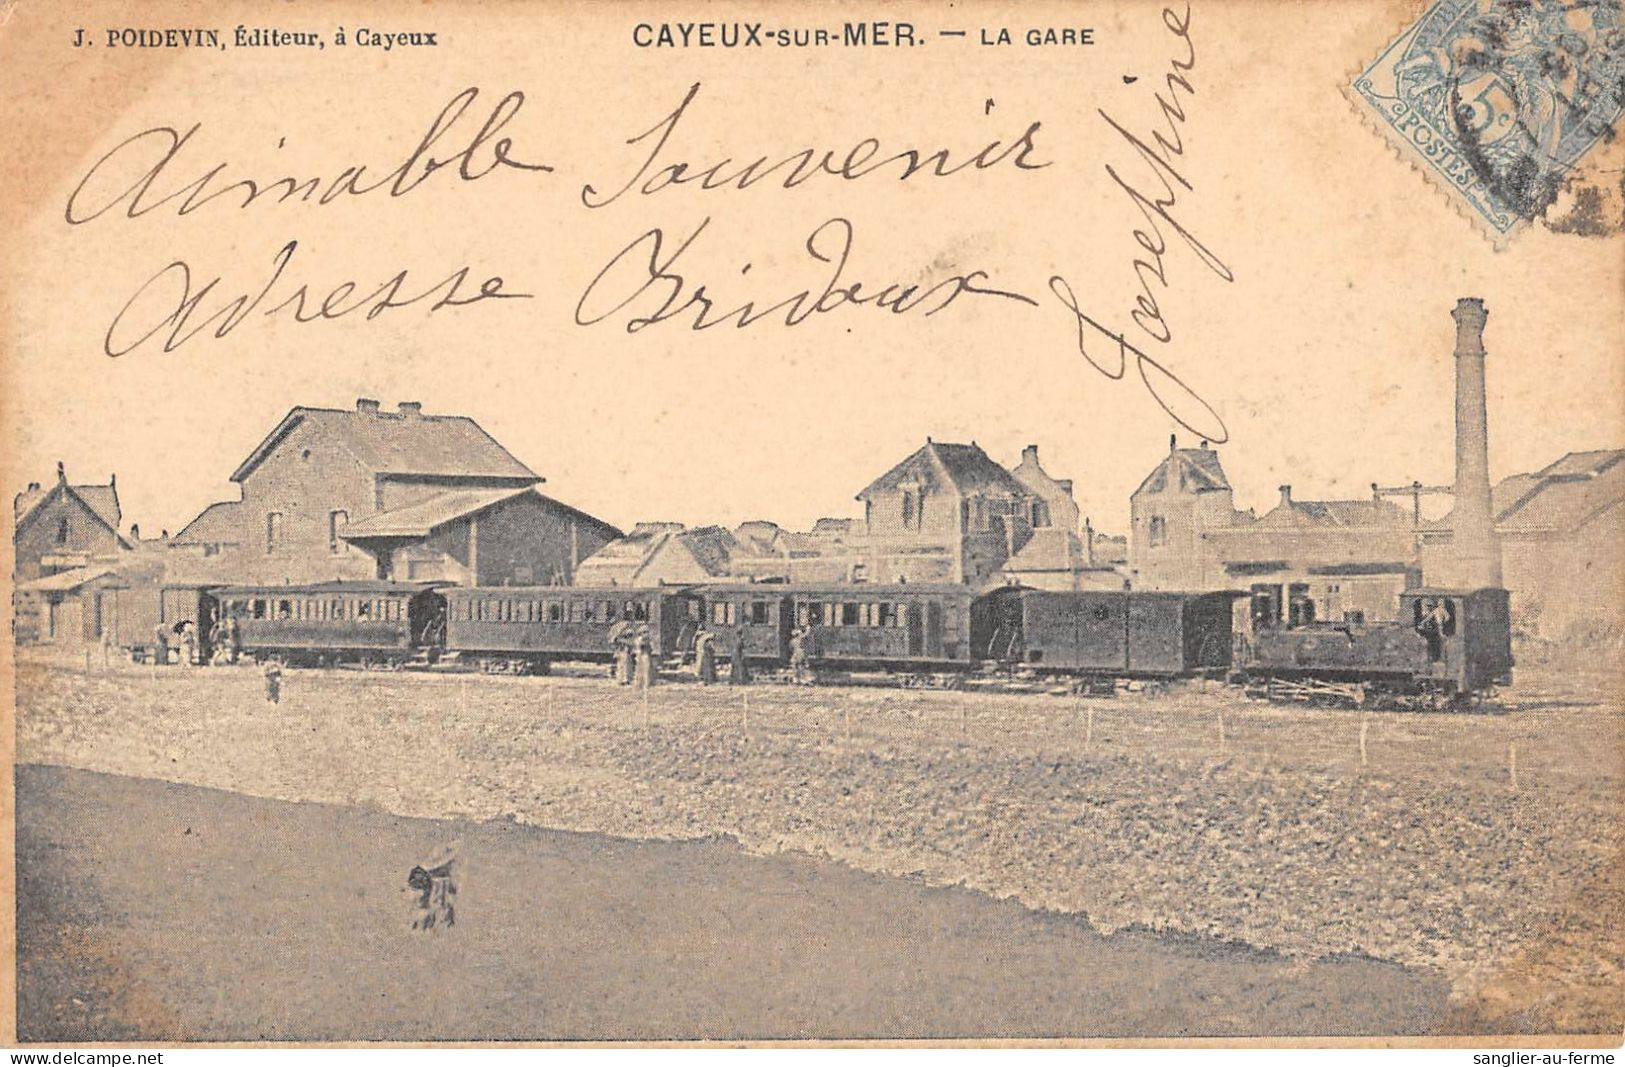 J. POIDEVIN, Éditeur, à Cayeux
CAYEUX-SUR-MER. — LA GARE
5c
POSTES
Aimable Souvenir
Adresse Bridoux
Joseppine
www.delcampe.net
sanglier-au-ferme